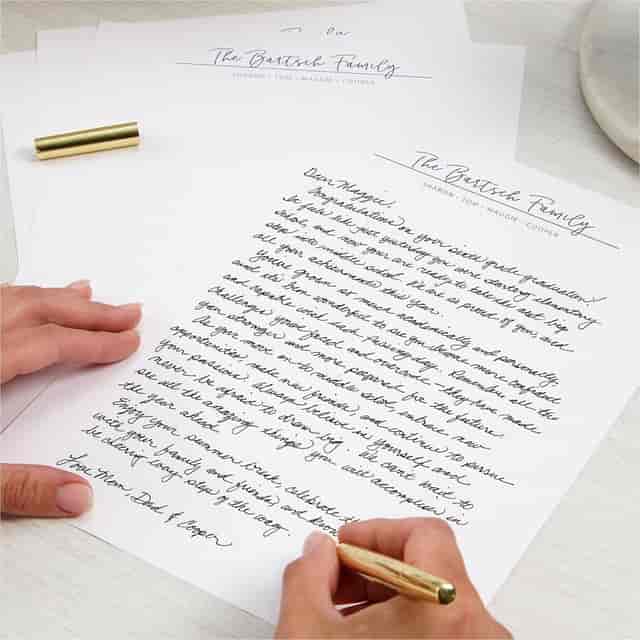 The Bartsch Family
SHARON • TOM • MAGGIE • COOPER
The Bartsch Family
SHARON • TOM • MAGGIE • COOPER
Dear Maggie,
Congratulations on your sixth grade graduation!
It feels like just yesterday you were starting elementary
school, and now you are ready to take the next big
step into middle school. We are so proud of you and
all your achievements this year.
You've grown so much academically and personally,
and it's been wonderful to see you become more confident
and capable with each passing day. Remember all the
challenges you've faced and overcome – they have made
you stronger and more prepared for the future.
As you move on to middle school, embrace new
opportunities, make new friends, and continue to pursue
your passions. Always believe in yourself and
never be afraid to dream big. We can't wait to
see all the amazing things you will accomplish in
the year ahead.
Enjoy your summer break, celebrate
with your family and friends, and
be cheering every step of the way.
Love, Mom, Dad & Cooper